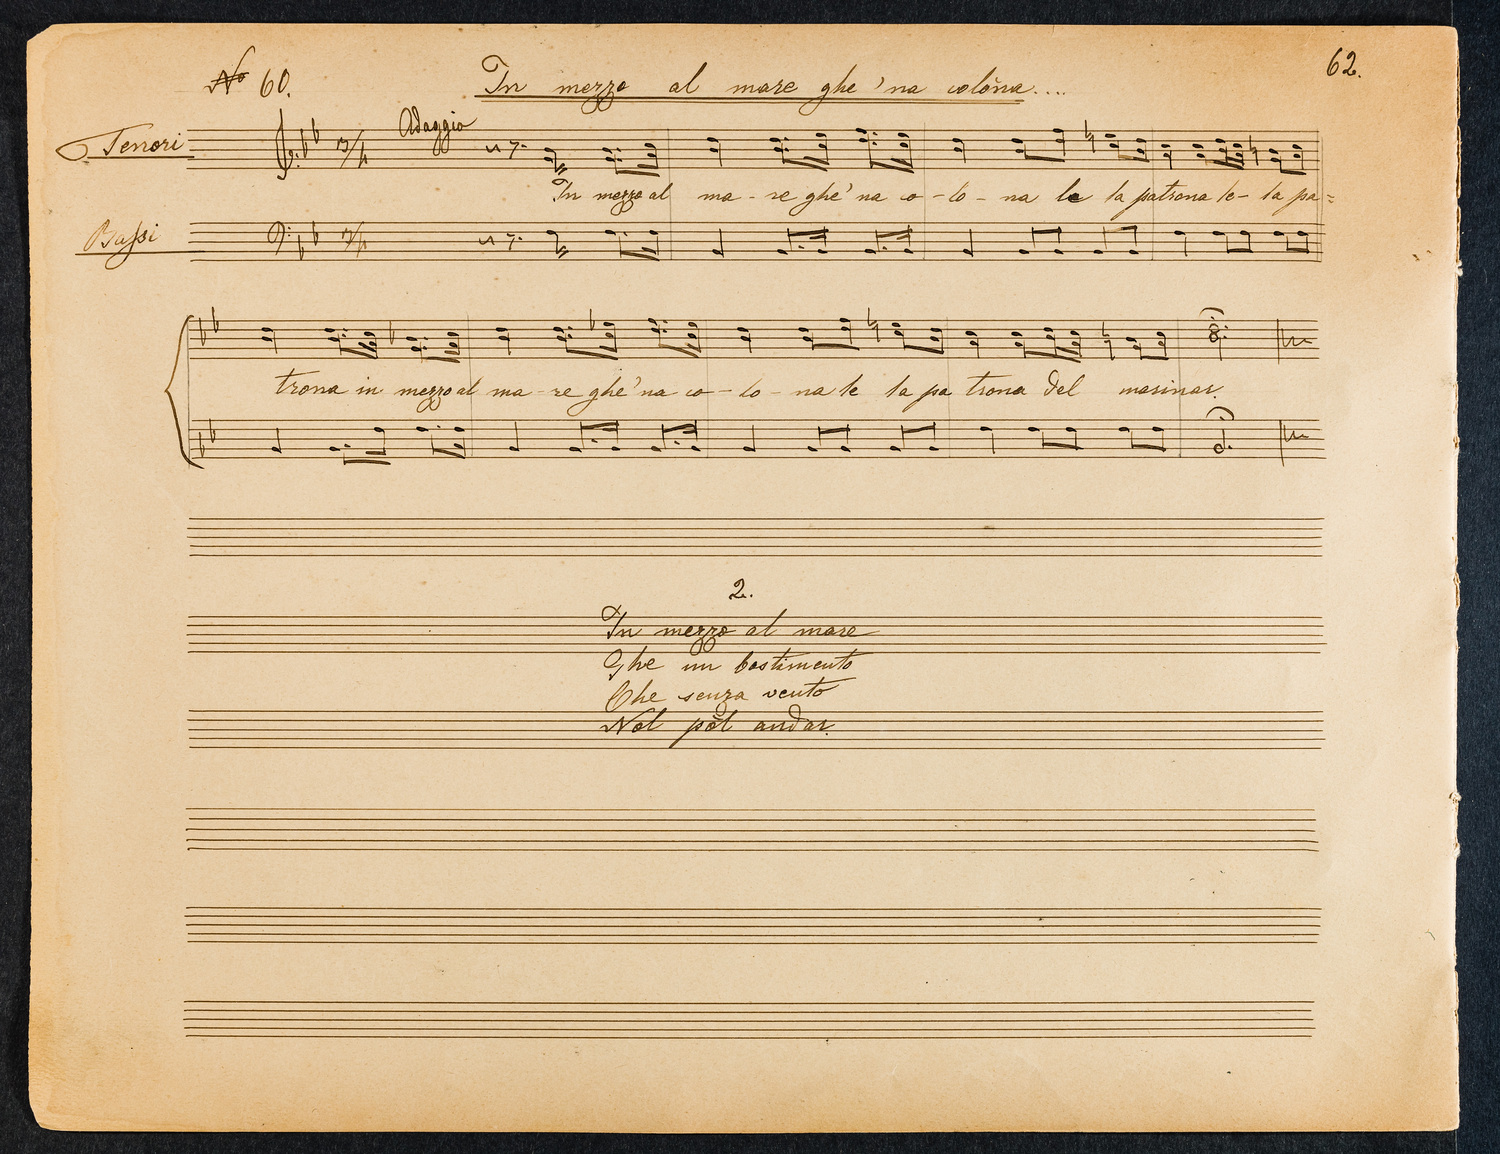 62.
No 60. In mezzo al mare ghe 'na colòna....
Adaggio
Tenori
In mezzo al ma - re ghe' na co - lo - na le la patrona le - la pa=
Bassi
trona in mezzo al ma - re ghe' na co - lo - na le la pa trona del marinar.
2.
In mezzo al mare
Ghe un bastimento
Che senza vento
Nol pòl andar.